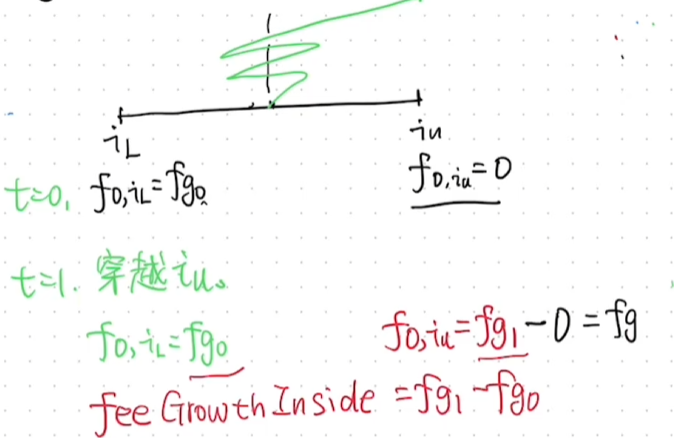 iL iu
t=0, fo,iL=fg0 fo,iu=0
t=1. 穿越iu。
fo,iL=fg0 fo,iu=fg1-0=fg
fee Growth Inside =fg1-fg0